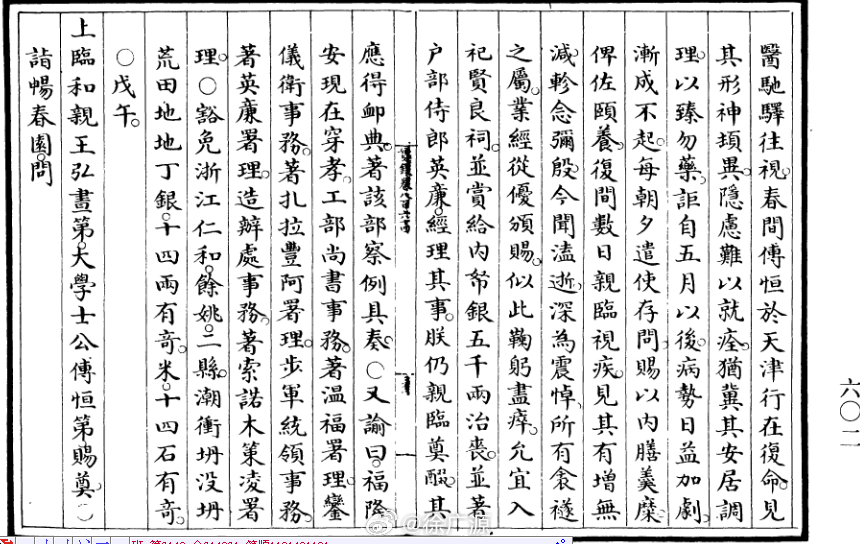 醫馳驛往視。春間傅恒於天津行在復命。見
其形神頓異。隱慮難以就痊。猶冀其安居調
理。以臻勿藥。詎自五月以後。病勢日益加劇。
漸成不起。每朝夕遣使存問。賜以内膳羹糜。
俾佐頤養。復間數日親臨視疾。見其有增無
減。軫念彌殷。今聞溘逝。深為震悼。所有衾襚
之屬。業經從優頒賜。似此鞠躬盡瘁。允宜入
祀賢良祠。並賞給内帑銀五千兩治喪。並著
户部侍郎英廉。經理其事。朕仍親臨奠醊。其
應得卹典。著該部察例具奏。○又諭曰。福隆
安現在穿孝。工部尚書事務。著温福署理。鑾
儀衛事務。著扎拉豐阿署理。步軍統領事務。
著英廉署理。造辦處事務。著索諾木策凌署
理。○豁免浙江仁和。餘姚。二縣。潮衝坍没坍
荒田地地丁銀。十四兩有奇。米。十四石有奇。
○戊午。
上臨和親王弘晝第。大學士公傅恒第賜奠。○
詣暢春園。問
六〇二
@徐广源